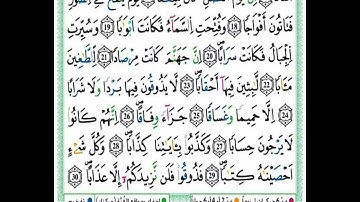 فَتَأْتُونَ أَفْوَاجًا 18 وَفُتِحَتِ ٱلسَّمَآءُ فَكَانَتْ أَبْوَٰبًا 19 وَسُيِّرَتِ
ٱلْجِبَالُ فَكَانَتْ سَرَابًا 20 إِنَّ جَهَنَّمَ كَانَتْ مِرْصَادًا 21 لِّلطَّـٰغِينَ
مَـَٔابًا 22 لَّـٰبِثِينَ فِيهَآ أَحْقَابًا 23 لَّا يَذُوقُونَ فِيهَا بَرْدًا وَلَا شَرَابًا
24 إِلَّا حَمِيمًا وَغَسَّاقًا 25 جَزَآءً وِفَاقًا 26 إِنَّهُمْ كَانُوا۟
لَا يَرْجُونَ حِسَابًا 27 وَكَذَّبُوا۟ بِـَٔايَـٰتِنَا كِذَّابًا 28 وَكُلَّ شَىْءٍ
أَحْصَيْنَـٰهُ كِتَـٰبًا 29 فَذُوقُوا۟ فَلَن نَّزِيدَكُمْ إِلَّا عَذَابًا 30